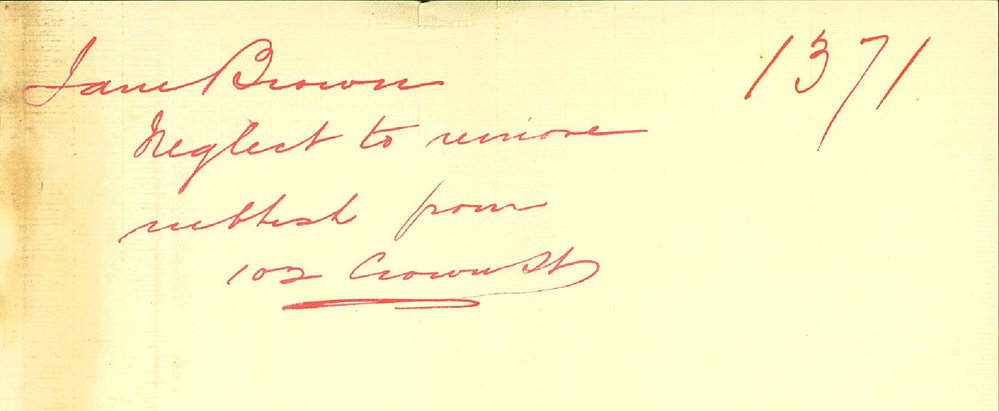 Jane Brown 1371
Neglect to remove
rubbish from
102 Crown St